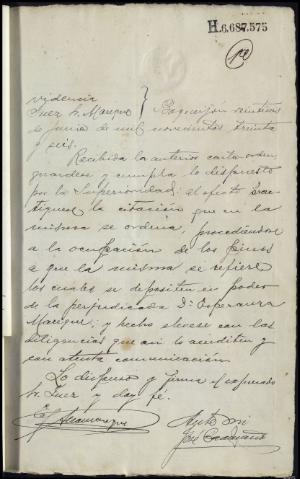 H.6.687.575
Providencia
Juez Sr. Manrique
de junio de mil novecientos treinta
y seis.
Recibida la anterior carta orden,
guardese y cumpla lo dispuesto
por la Superioridad; al efecto
la citación que en la
misma se ordena, procediendose
a la ocupación de los
a que la misma se refiere
los cuales se depositen en poder
de la perjudicada Dª Esperanza
Manrique; y hecho elevese con las
diligencias que asi lo acrediten y
con atenta comunicación.
Lo dispuso y firma el expresado
Sr. Juez y doy fe.
Ante mi